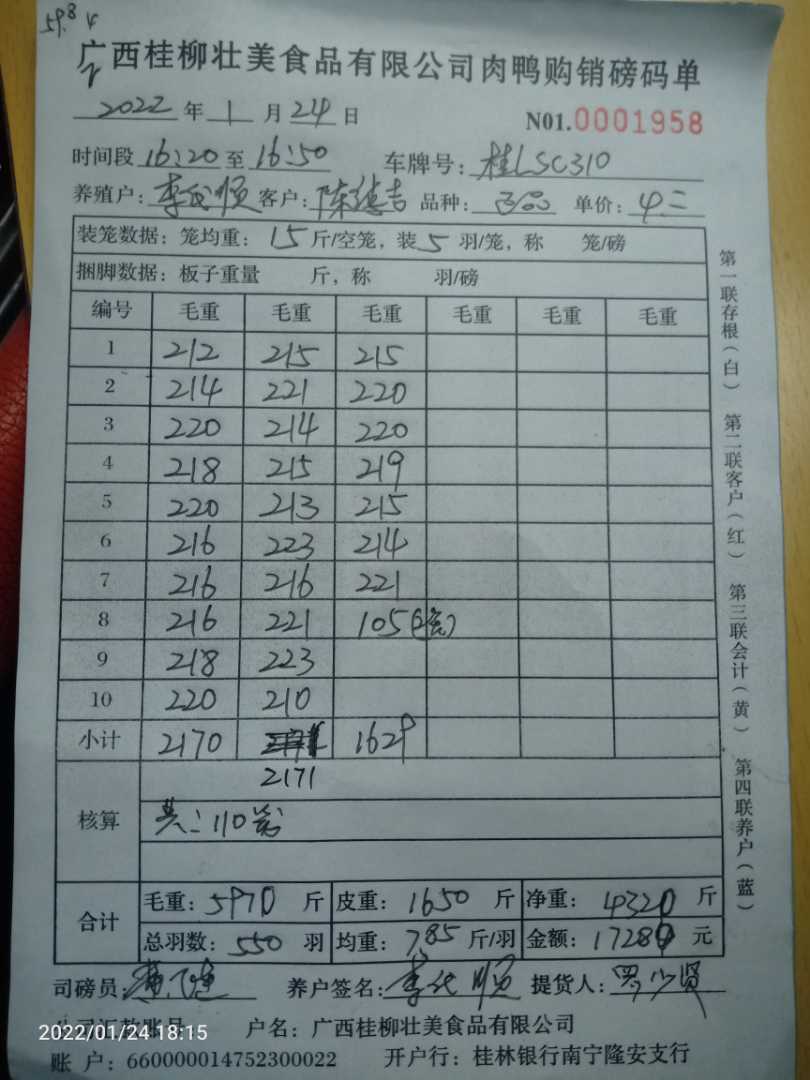 59.8 4
广西桂柳壮美食品有限公司肉鸭购销磅码单
2022年1月24日 N01.0001958
时间段16:20至16:50 车牌号：桂LSC310
养殖户：李代顺 客户：陈德吉 品种： 单价：4.
装笼数据：笼均重：15斤/空笼，装5羽/笼，称 笼/磅
捆脚数据：板子重量 斤，称 羽/磅
编号 毛重 毛重 毛重 毛重 毛重 毛重
1 212 215 215
2 214 221 220
3 220 214 220
4 218 215 219
5 220 213 215
6 216 223 214
7 216 216 221
8 216 221 105
9 218 223
10 220 210
小计 2170 1629
2171
核算 共：110笼
合计 毛重：5970斤 皮重：1650斤 净重：4320斤
总羽数：550羽 均重：7.85斤/羽 金额：17280元
司磅员： 养户签名：李代顺 提货人：罗少贤
公司汇款账号 户名：广西桂柳壮美食品有限公司
账户：660000014752300022 开户行：桂林银行南宁隆安支行
第一联存根（白） 第二联客户（红） 第三联会计（黄） 第四联养户（蓝）
2022/01/24 18:15